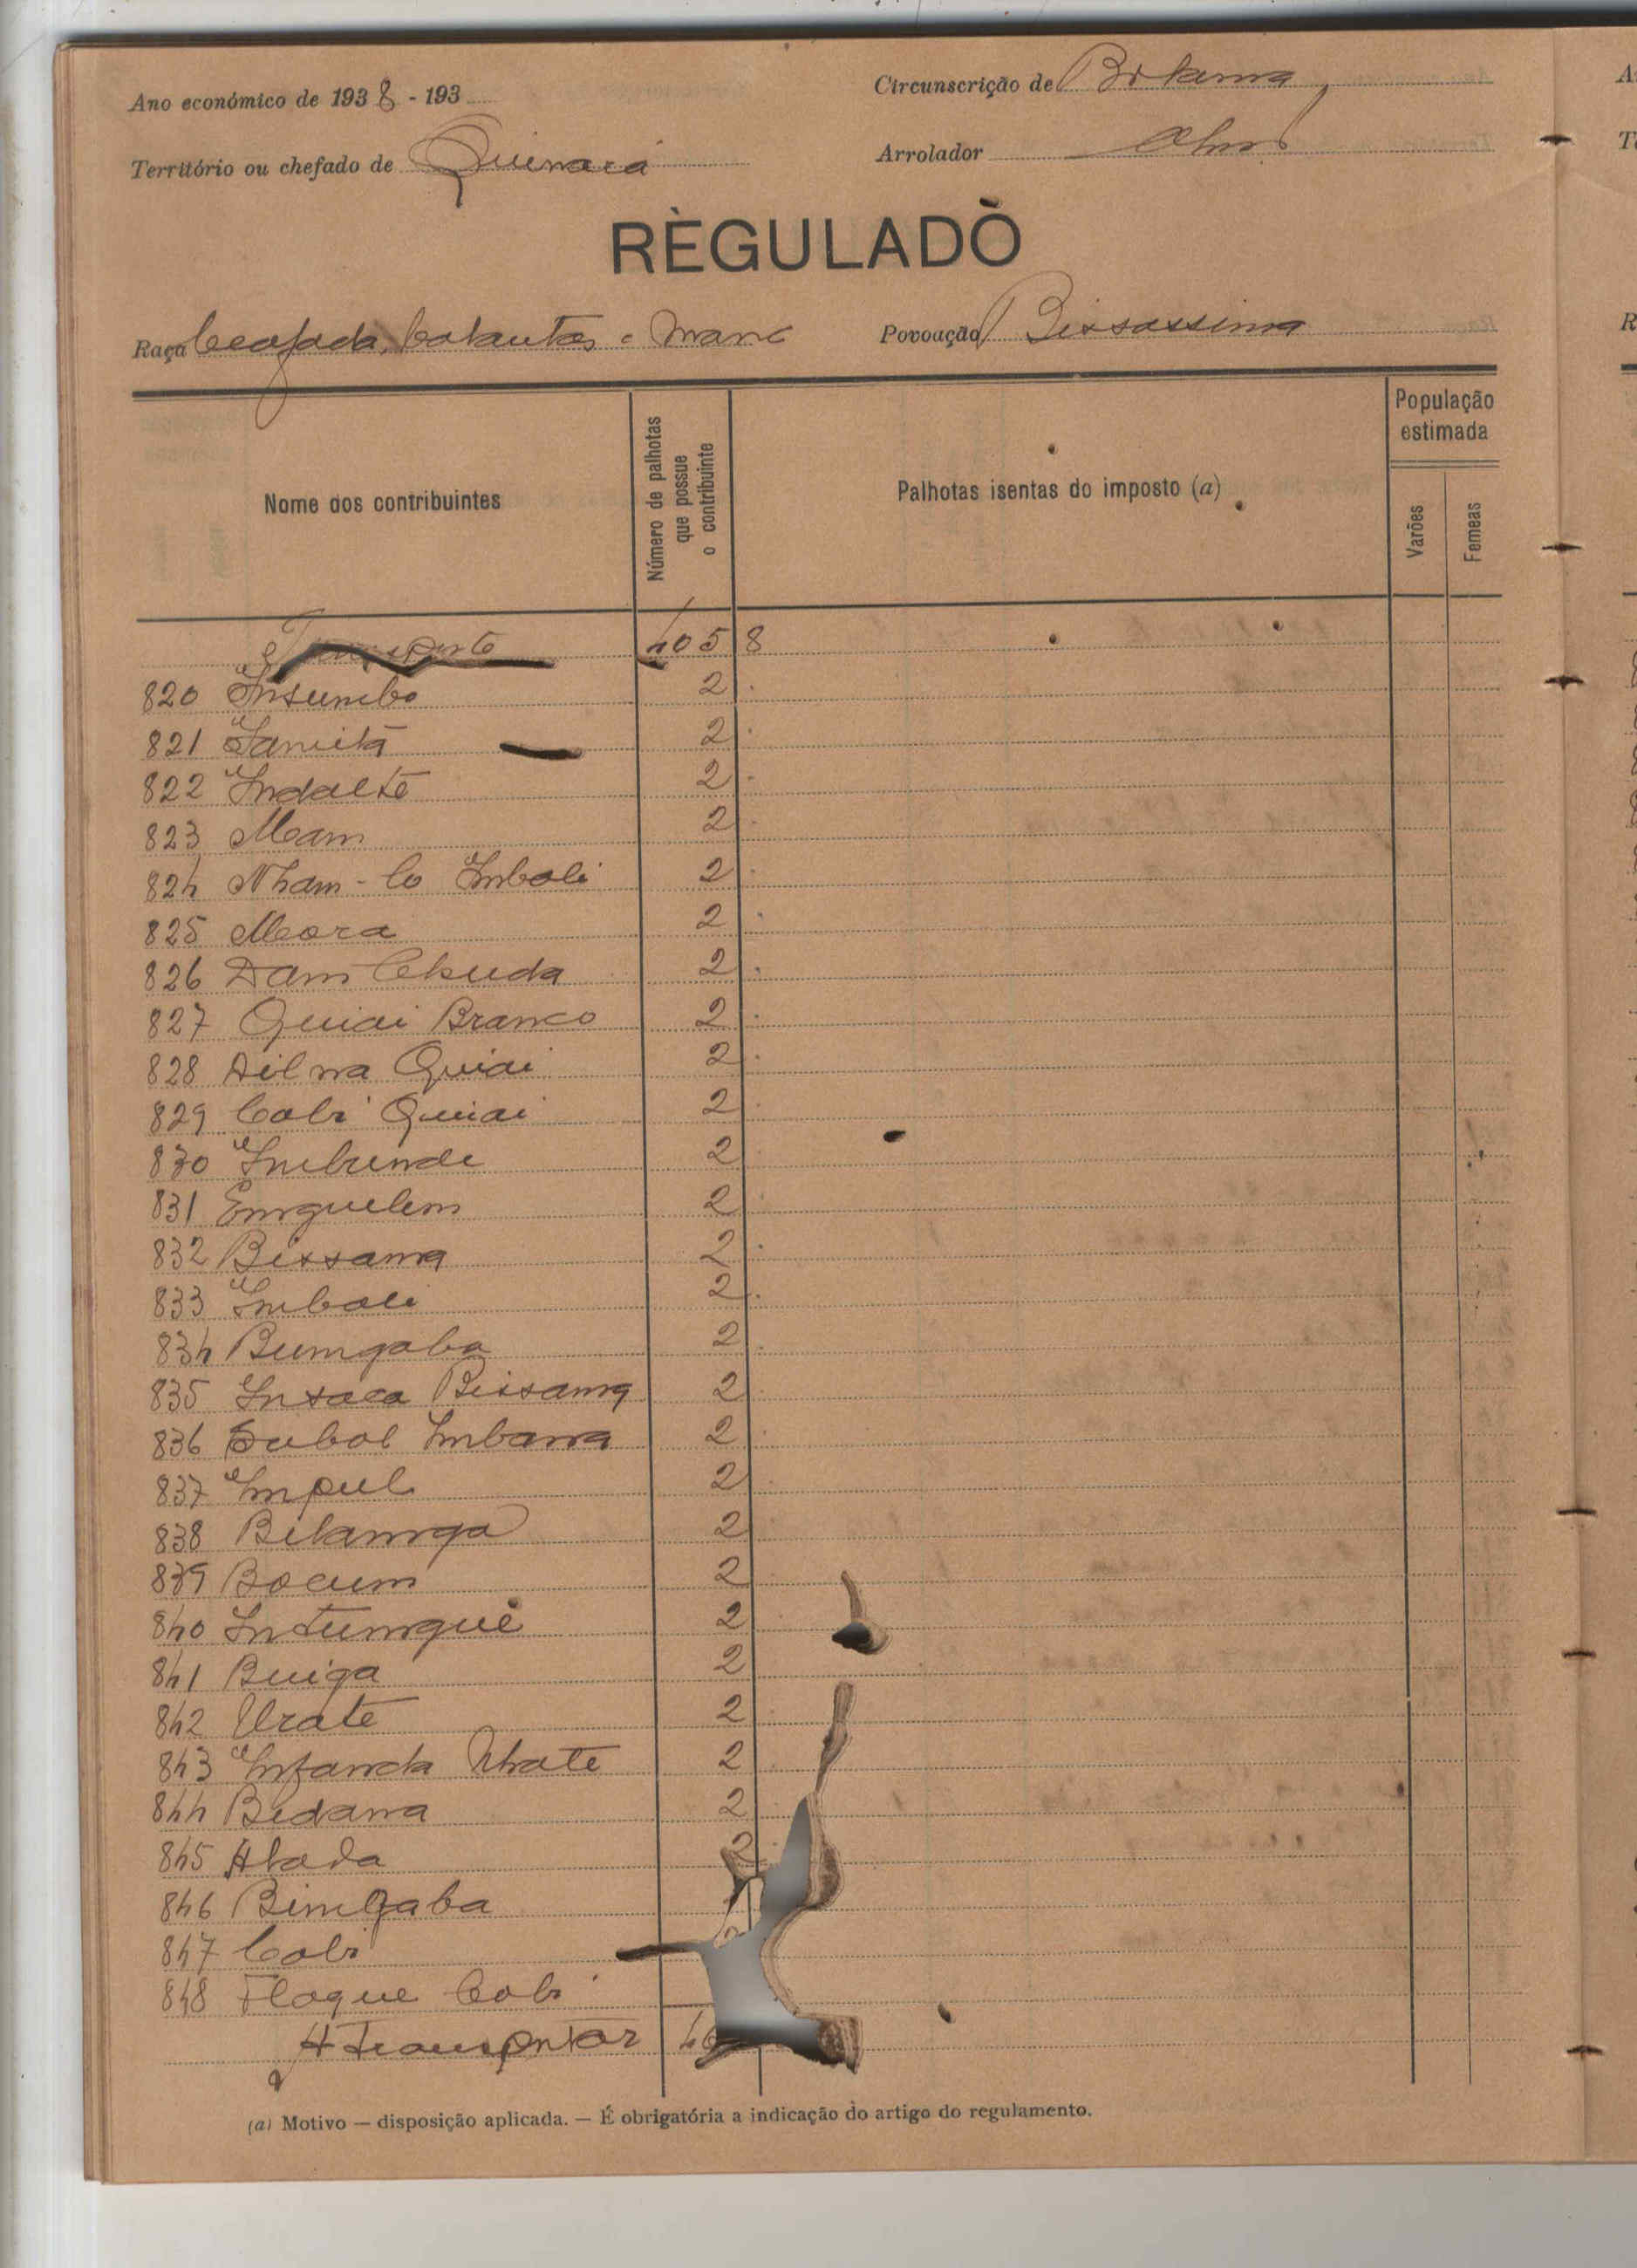 Ano económico de 1938 - 193
Circunscrição de Bolama
Território ou chefado de Quinará
Arrolador
REGULADO
Raça Beafada, Balantas e
Povoação Bissassima
Nome dos contribuintes
Número de palhotas que possue o contribuinte
Palhotas isentas do imposto (a)
População estimada
Varões
Femeas
Transporte 1058
820 Insumbo 2
821 2
822 Indalté 2
823 Mam 2
824 Nham-Co Imbali 2
825 2
826 Dam Chuda 2
827 Quiai Branco 2
828 Dilna Quiai 2
829 Cabi Quiai 2
830 Imbunde 2
831 Enguelem 2
832 Bissama 2
833 Imbali 2
834 Bungaba 2
835 Insaca Bissang 2
836 Imbana 2
837 Impul 2
838 Bitanga 2
839 Bocum 2
840 Intungué 2
841 Buiga 2
842 Urate 2
843 Infanda Urate 2
844 Bedana 2
845 2
846 Bingaba
847 Cabi
848 Floque Cabi
A Transportar
(a) Motivo — disposição aplicada. — É obrigatória a indicação do artigo do regulamento.